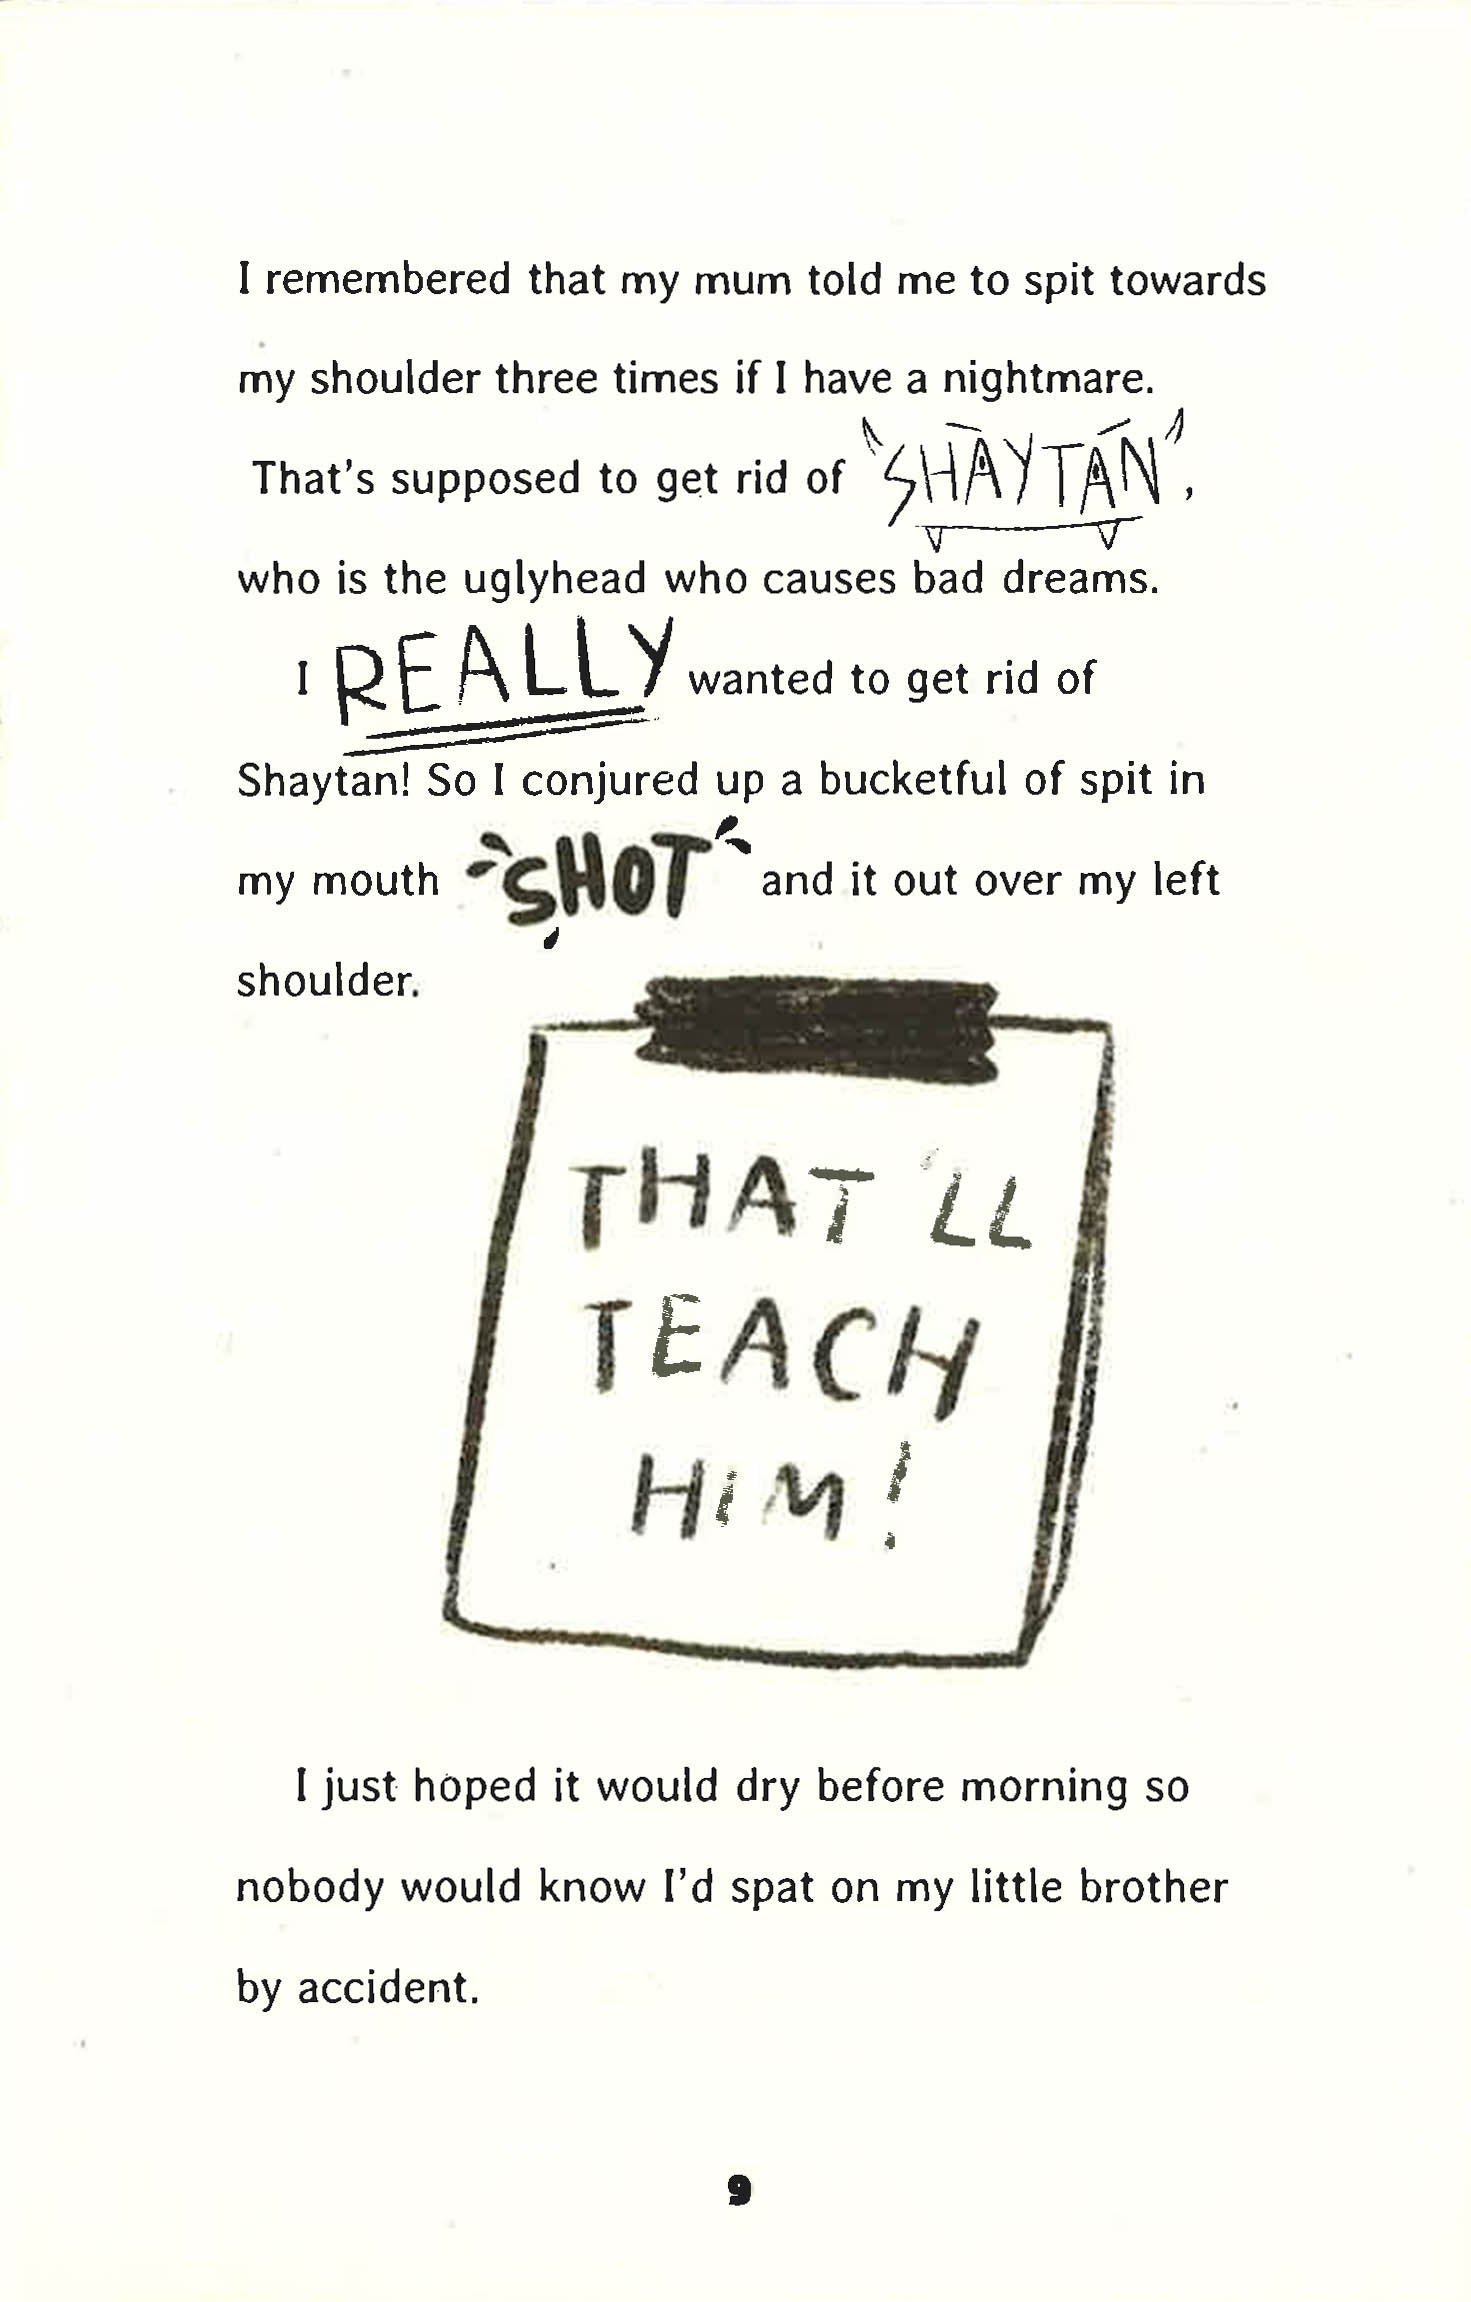 I remembered that my mum told me to spit towards
my shoulder three times if I have a nightmare.
That's supposed to get rid of SHAYTAN,
who is the uglyhead who causes bad dreams.
I REALLY wanted to get rid of
Shaytan! So I conjured up a bucketful of spit in
my mouth SHOT and it out over my left
shoulder.
THAT'LL
TEACH
HIM!
I just hoped it would dry before morning so
nobody would know I'd spat on my little brother
by accident.
9